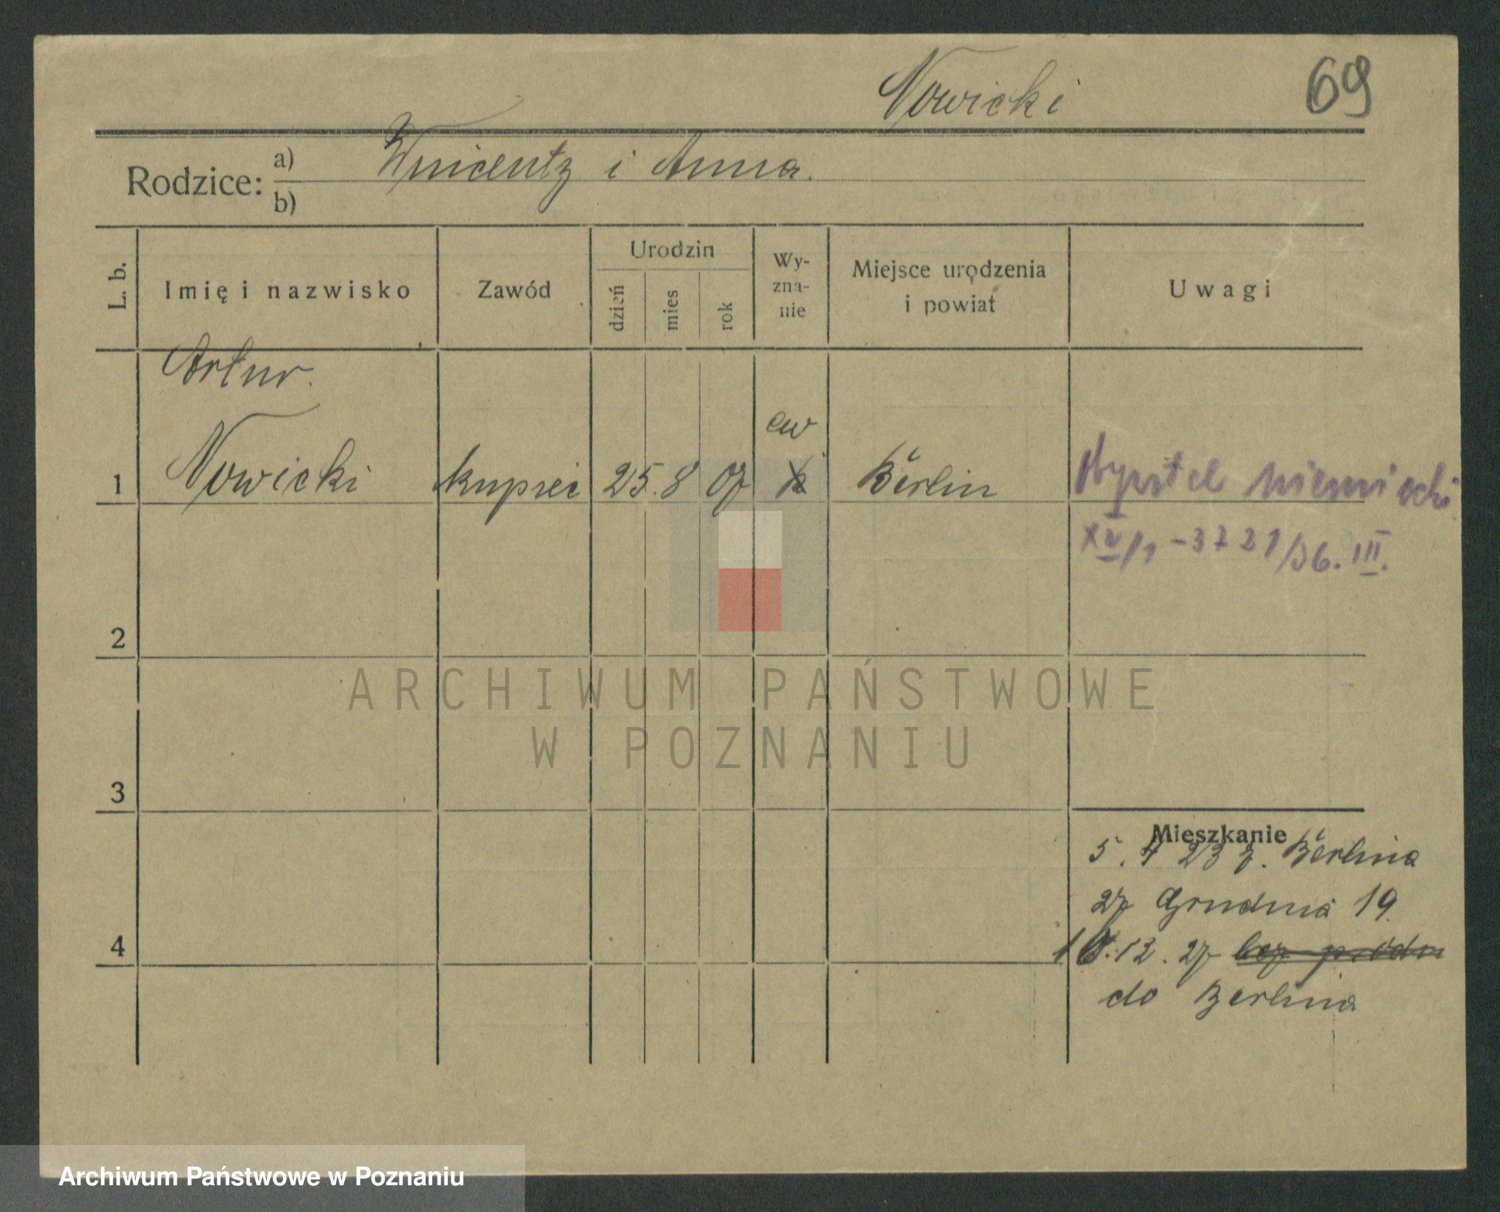 Nowicki 69
Rodzice: a) Wnicentz i Anna.
b)
L. b. Imię i nazwisko Zawód Urodzin dzień mies rok Wy-zna-nie Miejsce urodzenia i powiat Uwagi
Artur.
ew
1 Nowicki kupiec 25. 8 07 Berlin
XV/1 - 3721/36. III.
2
ARCHIWUM PAŃSTWOWE
W POZNANIU
3
Mieszkanie
5. 4 23 z. Berlina
27 Grudnia 19.
4 16.12. 27
do Berlina
Archiwum Państwowe w Poznaniu